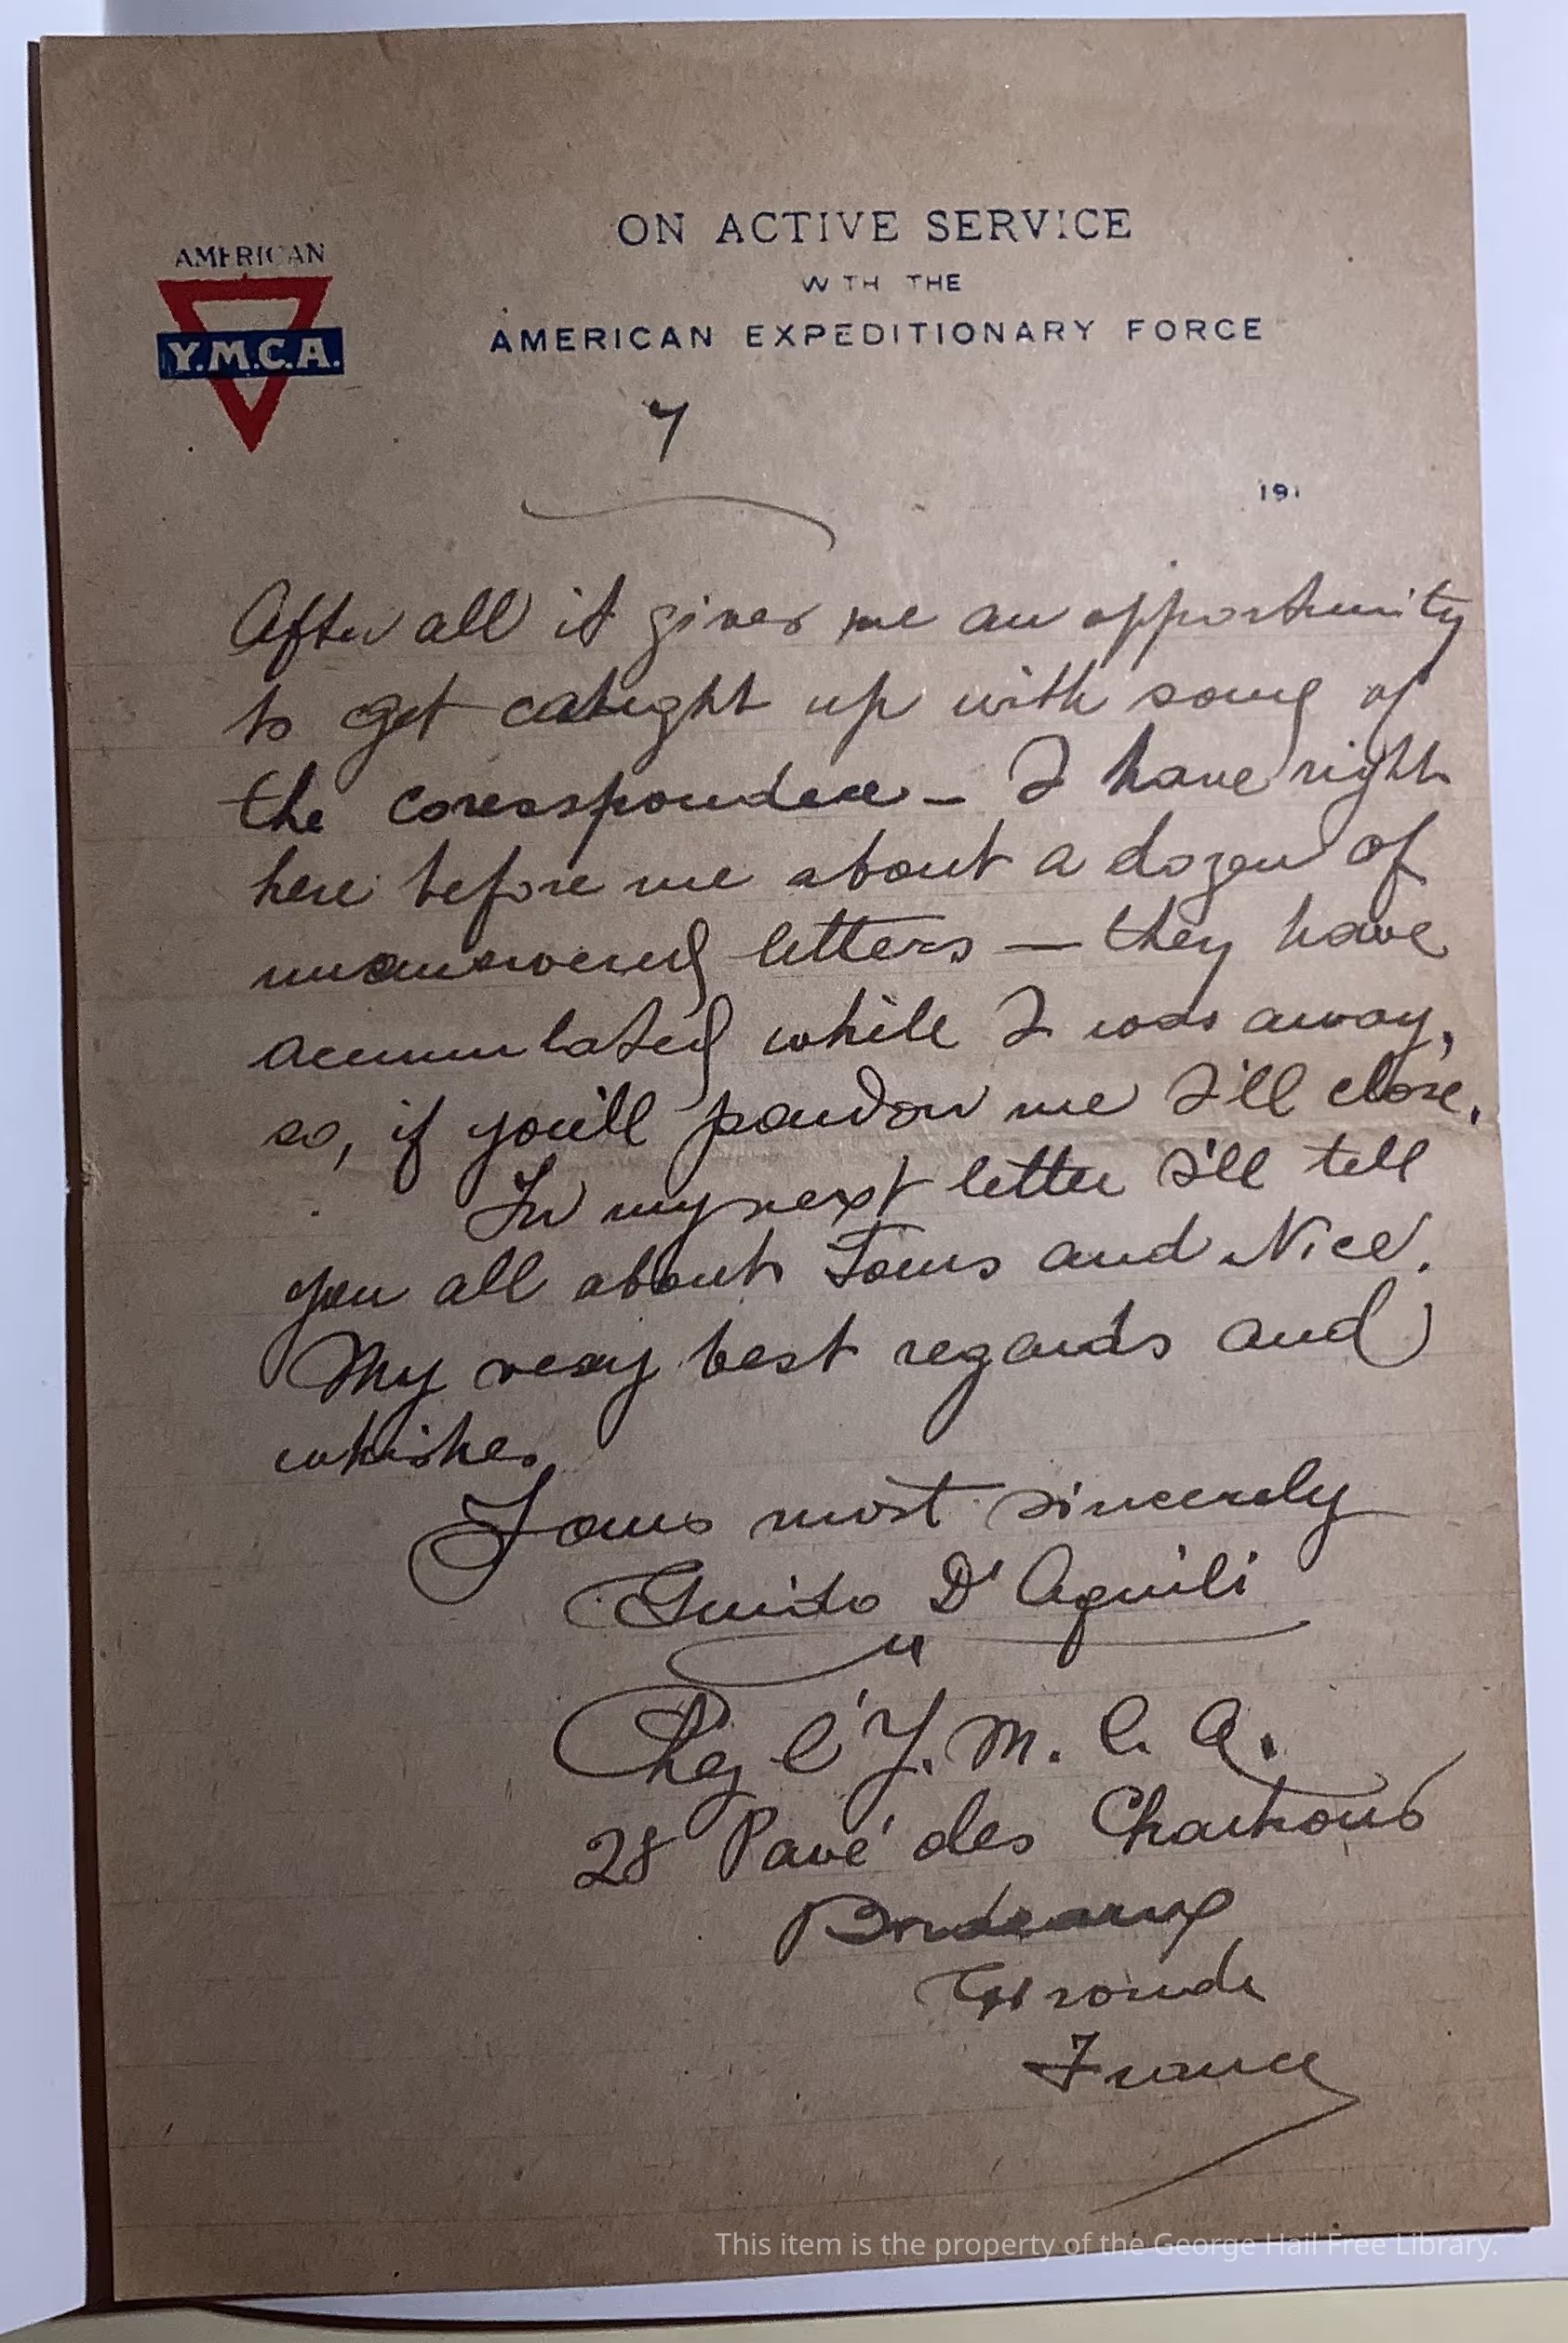 ON ACTIVE SERVICE
WITH THE
AMERICAN EXPEDITIONARY FORCE
AMERICAN
Y.M.C.A.
7
191
After all it gives me an opportunity
to get caught up with some of
the coresspondece — I have right
here before me about a dozen of
unanswered letters — they have
acumulated while I was away,
so, if you'll pardon me I'll close.
In my next letter I'll tell
you all about Tours and Nice.
My very best regards and
whishes
Yours most sincerely
Guido D'Aquili
Chez l'Y.M.C.A.
28 Pavé des Chartrons
Bordeaux
Gironde
France
This item is the property of the George Hail Free Library.